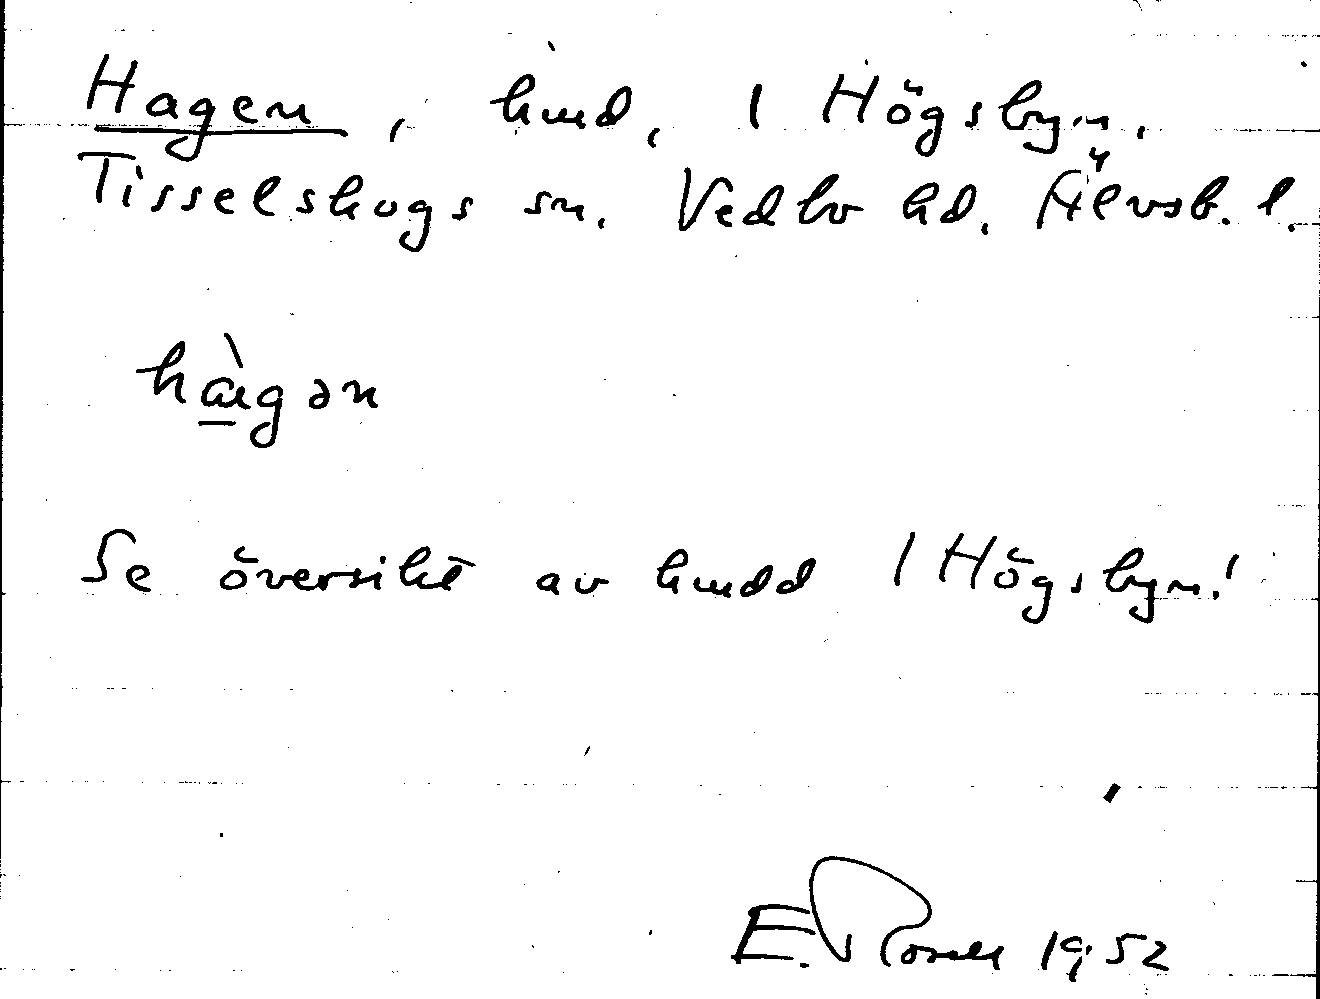 Hagen, hmd, 1 Högsbyn,
Tisselskogs sn. Vedbo hd. Älvsb. l.
hàgən
Se översikt av hmdd 1 Högsbyn!
E. Rosell 1952